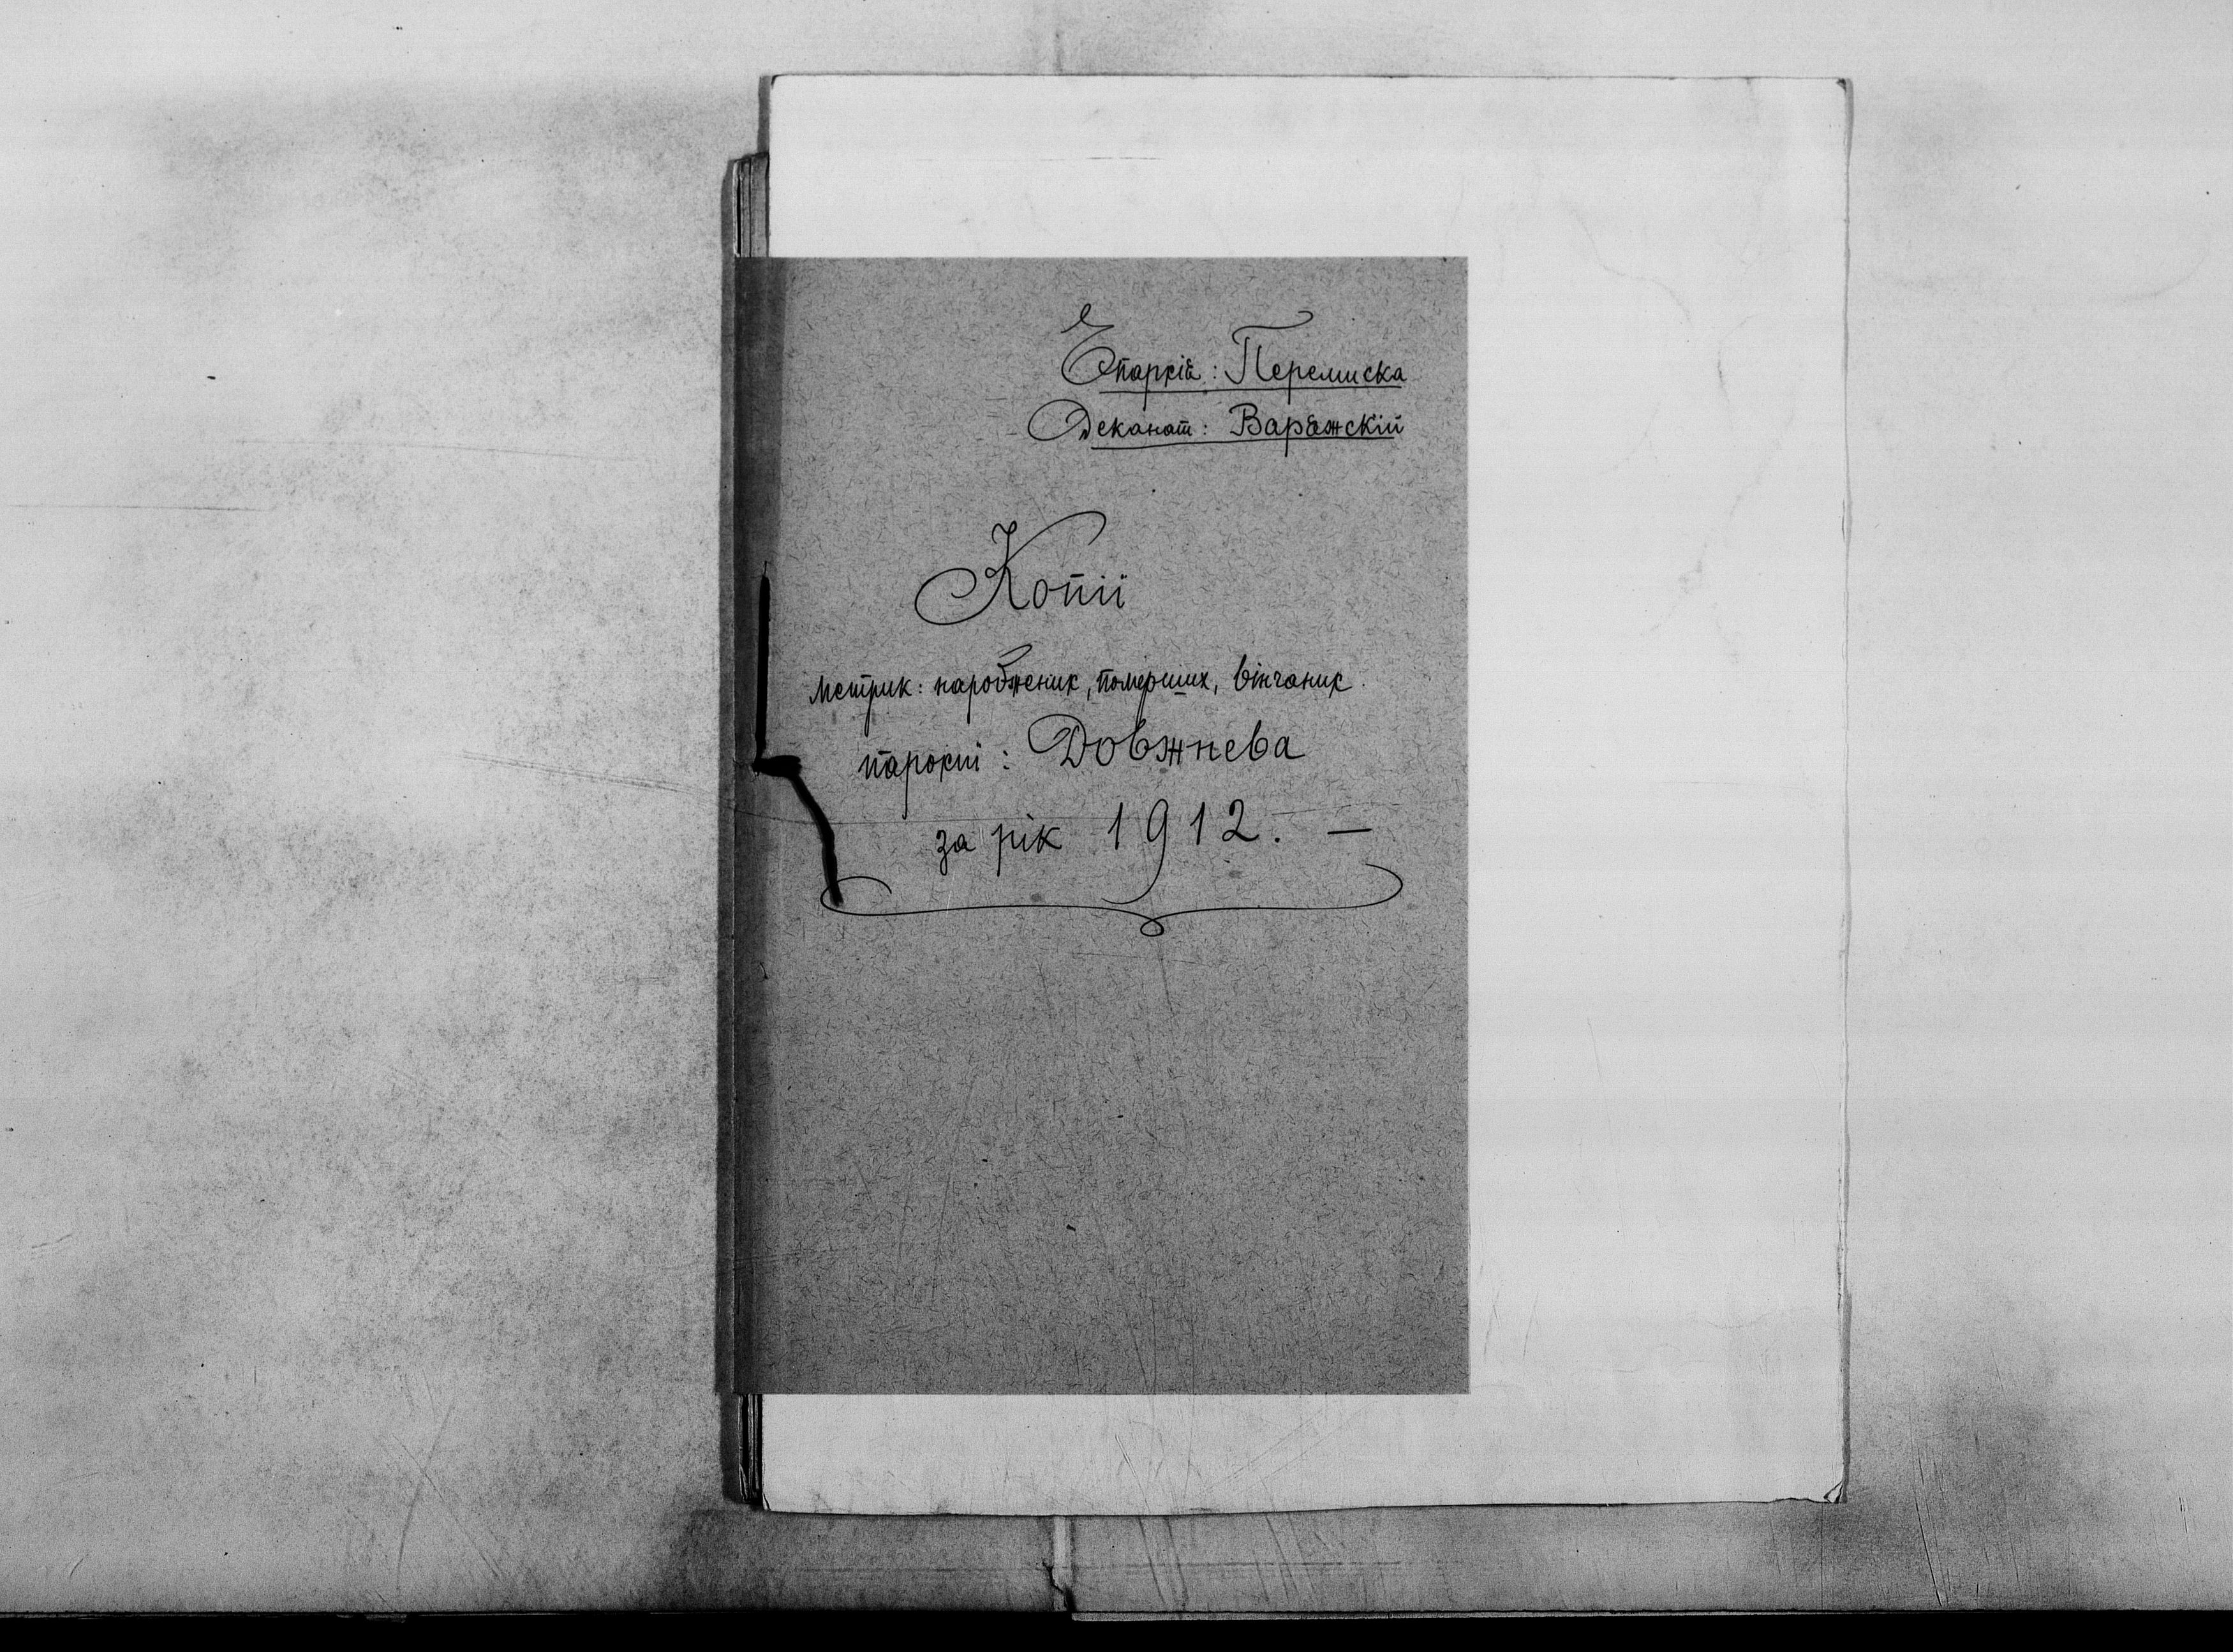 Епархія: Перемиска
Деканат: Варяжскій
Копії
метрик: народжених, помėрших, вінчаних.
парохії: Довжнева
за рік 1912. —